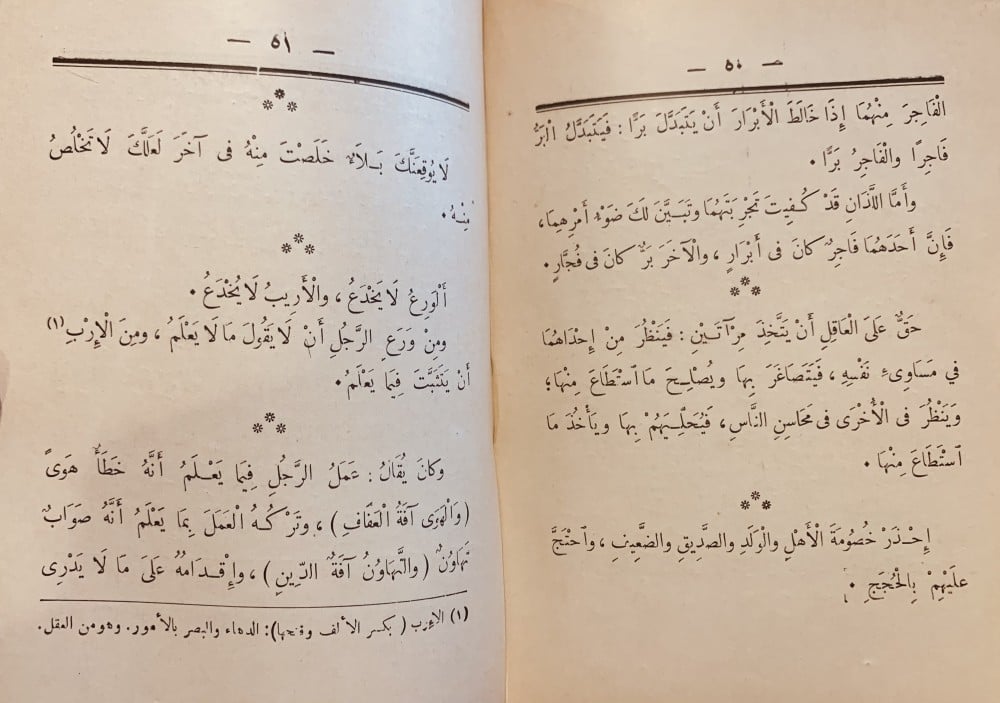 — ٥٠ —
الْفَاجِرَ مِنْهُمَا إِذَا خَالَطَ الْأَبْرَارَ أَنْ يَتَبَدَّلَ بَرًّا : فَيَتَبَدَّلُ الْبَرُّ
فَاجِرًا والْفَاجِرُ بَرًّا .
وأَمَّا اللَّذَانِ قَدْ كُفِيتَ تَجْرِبَتَهُمَا وتَبَيَّنَ لَكَ ضَوْءُ أَمْرِهِمَا،
فَإِنَّ أَحَدَهُمَا فَاجِرٌ كانَ فى أَبْرَارٍ ، والْآخَرَ بَرٌّ كانَ فى فُجَّارٍ .
***
حَقٌّ عَلَى الْعَاقِلِ أَنْ يَتَّخِذَ مِرْآتَيْنِ : فَيَنْظُرَ مِنْ إِحْدَاهُمَا
في مَسَاوِىءِ نَفْسِهِ ، فَيَتَصَاغَرَ بِهَا ويُصْلِحَ مَا ٱسْتَطَاعَ مِنْهَا ؛
وَيَنْظُرَ فى الْأُخْرَى فى مَحَاسِنِ النَّاسِ ، فَيُحَلِّيَهُمْ بِهَا ويَأْخُذَ مَا
ٱسْتَطَاعَ مِنْهَا .
***
إِحْذَرْ خُصُومَةَ الْأَهْلِ والْوَلَدِ والصَّدِيقِ والضَّعِيفِ ، وٱحْتَجَّ
علَيْهِمْ بِالْحُجَجِ .
— ٥١ —
***
لَا يُوقِعَنَّكَ بَلَاءٌ خَلَصْتَ مِنْهُ فى آخَرَ لَعَلَّكَ لَا تَخْلُصُ
مِنْهُ .
***
أَلْوَرِعُ لَا يَخْدَعُ ، والْأَرِيبُ لَا يُخْدَعُ .
ومِنْ وَرَعِ الرَّجُلِ أَنْ لَا يَقُولَ مَا لَا يَعْلَمُ ، ومِنَ الْإِرْبِ (١)
أَنْ يَتَثَبَّتَ فِيمَا يَعْلَمُ .
***
وكانَ يُقَالُ : عَمَلُ الرَّجُلِ فِيمَا يَعْلَمُ أَنَّهُ خَطَأٌ هَوًى
(وَالْهَوَى آفَةُ الْعَفَافِ) ، وتَرْكُهُ الْعَمَلَ بِمَا يَعْلَمُ أَنَّهُ صَوَابٌ
تَهَاوُنٌ (والتَّهَاوُنُ آفَةُ الدِّينِ) ، وإِقْدَامُهُ عَلَى مَا لَا يَدْرِى
(١) الإرب (بكسر الألف وفتحها): الدهاء والبصر بالأمور. وهو من العقل.